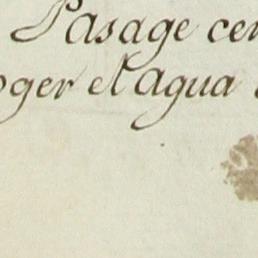 Pasage cer
oger el agua